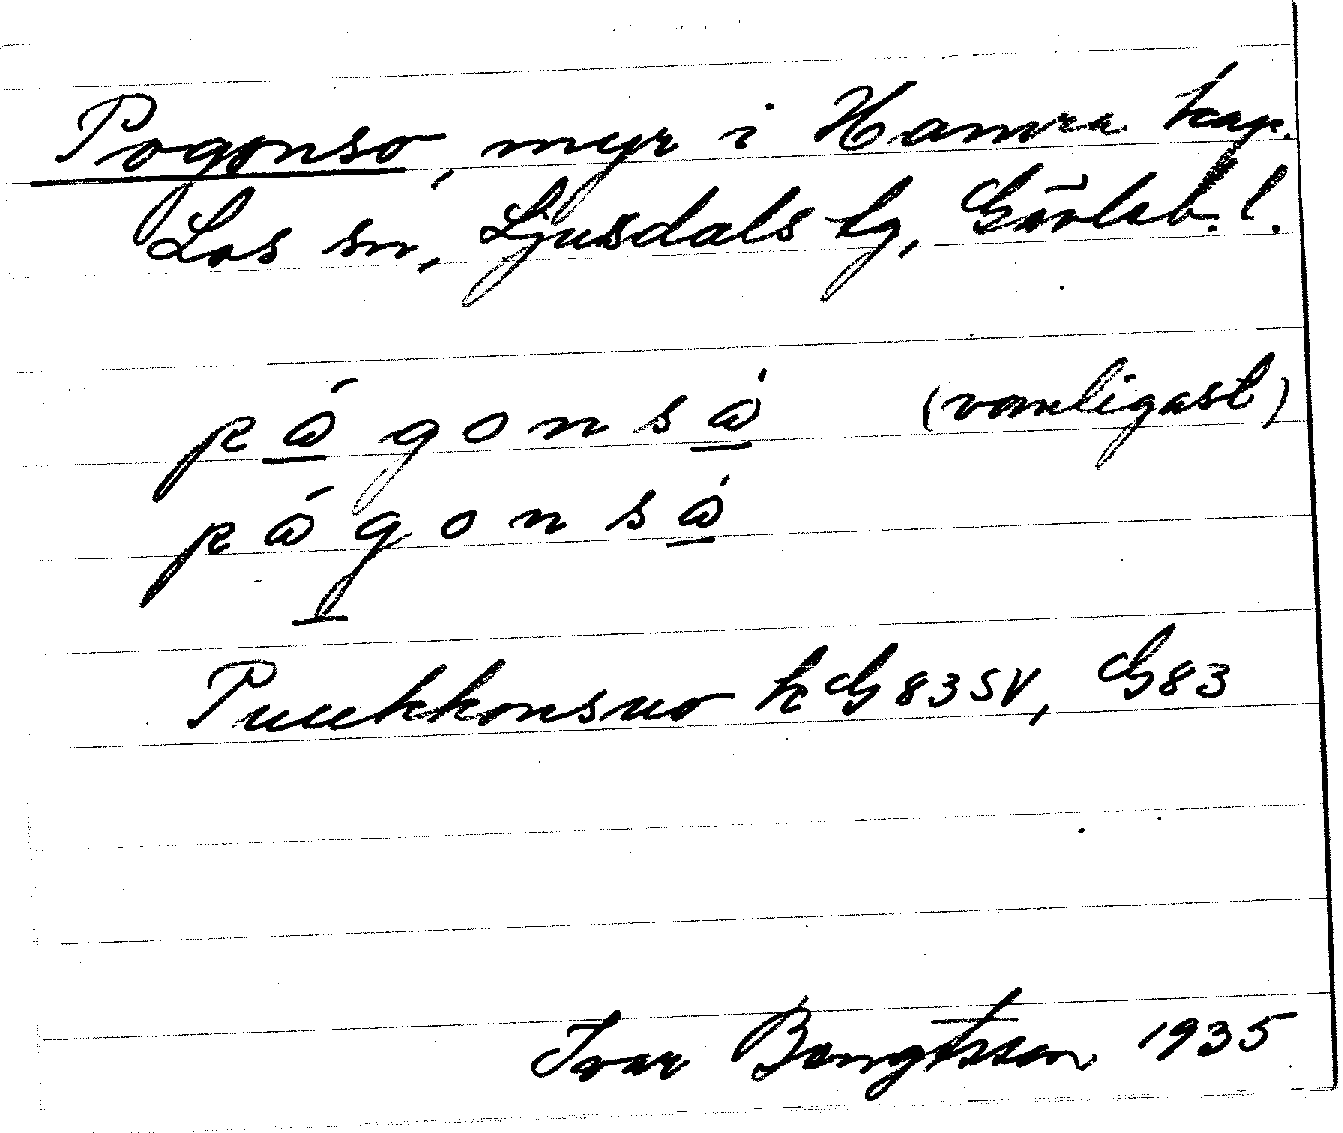 Pogonso, myr i Hamra kap.
Los sn, Ljusdals tg, Gävleb. l.
pågonså (vanligast)
pågonså
Puukkonsuo k G 83 SV, G 83
Ivar Bengtsson 1935